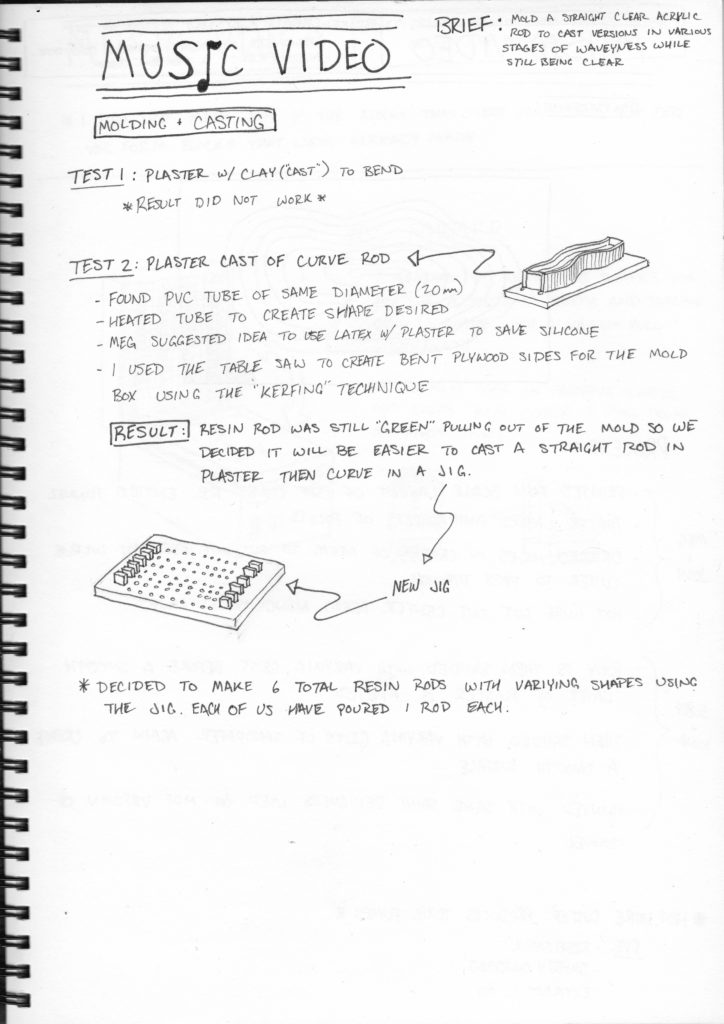 MUSIC VIDEO
BRIEF: MOLD A STRAIGHT CLEAR ACRYLIC
ROD TO CAST VERSIONS IN VARIOUS
STAGES OF WAVEYNESS WHILE
STILL BEING CLEAR
MOLDING + CASTING
TEST 1: PLASTER W/ CLAY ("CAST") TO BEND
*RESULT DID NOT WORK*
TEST 2: PLASTER CAST OF CURVE ROD
- FOUND PVC TUBE OF SAME DIAMETER (20mm)
- HEATED TUBE TO CREATE SHAPE DESIRED
- MEG SUGGESTED IDEA TO USE LATEX W/ PLASTER TO SAVE SILICONE
- I USED THE TABLE SAW TO CREATE BENT PLYWOOD SIDES FOR THE MOLD
BOX USING THE "KERFING" TECHNIQUE
RESULT: RESIN ROD WAS STILL "GREEN" PULLING OUT OF THE MOLD SO WE
DECIDED IT WILL BE EASIER TO CAST A STRAIGHT ROD IN
PLASTER THEN CURVE IN A JIG.
NEW JIG
* DECIDED TO MAKE 6 TOTAL RESIN RODS WITH VARIYING SHAPES USING
THE JIG. EACH OF US HAVE POURED 1 ROD EACH.